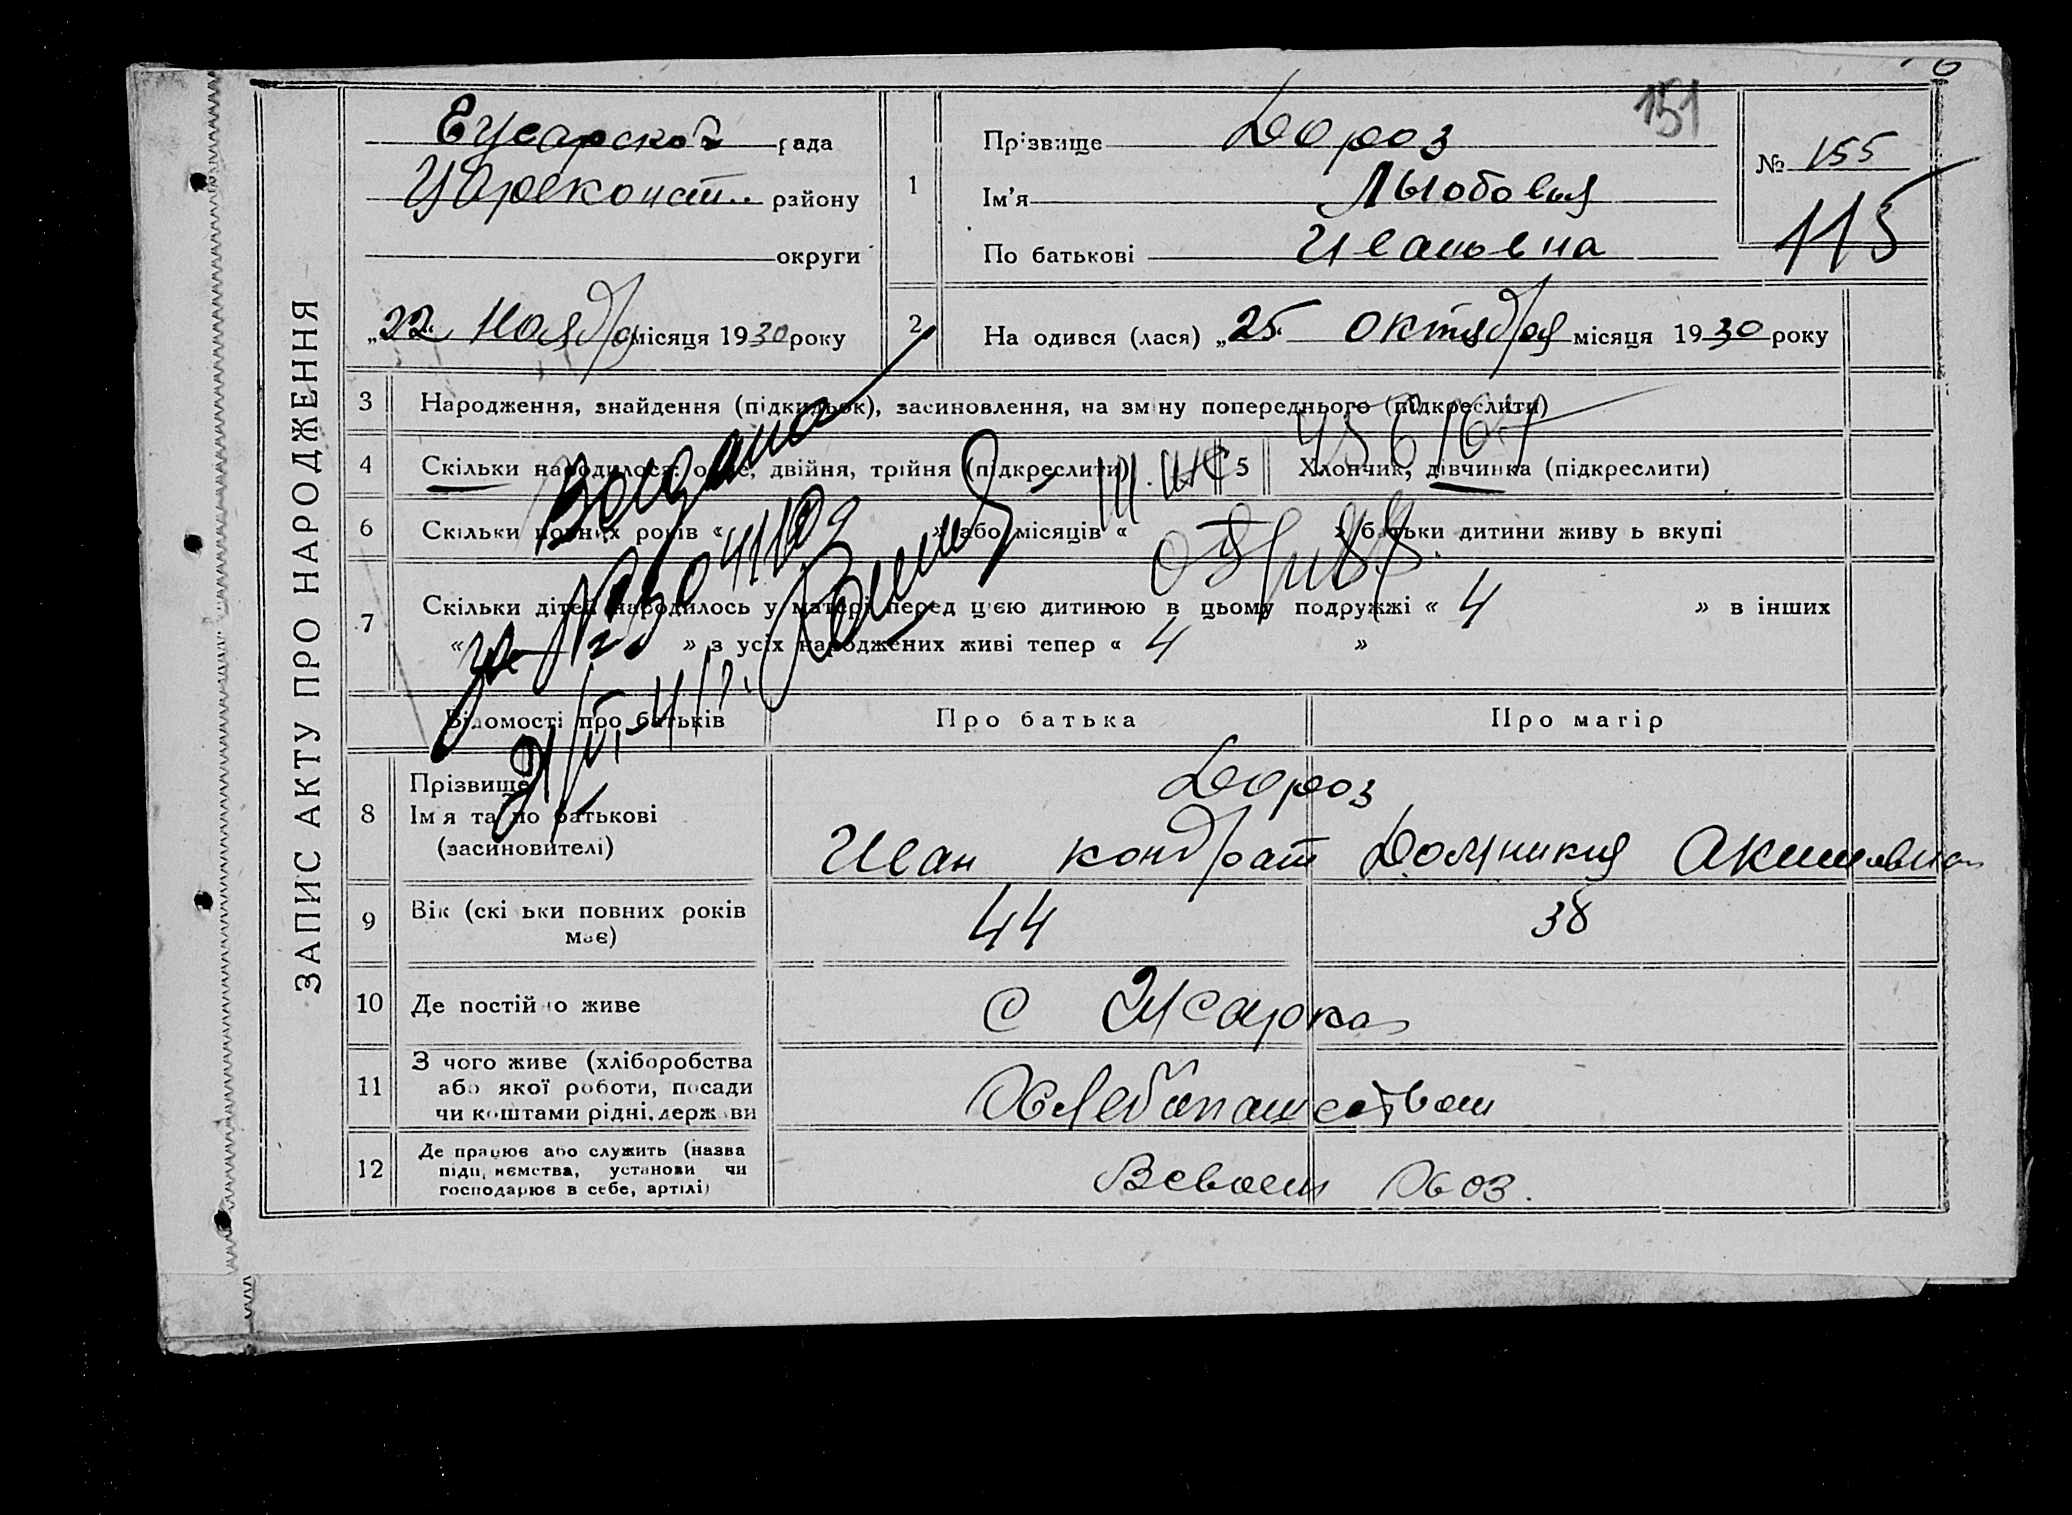 ЗАПИС АКТУ ПРО НАРОДЖЕННЯ
рада
району
округи
„22 Ноября місяця 1930 року
151
1 Прізвище Дороз
Ім'я Лыобовья
По батькові Ивановна
№ 155
115
2 На одився (лася) „25 октября місяця 1930 року
3 Народження, знайдення (підкидьок), засиновлення, на зміну попереднього (підкреслити)
4 Скільки народилося: одне, двійня, трійня (підкреслити)
5 Хлопчик, дівчинка (підкреслити)
6 Скільки повних років « » або місяців « » батьки дитини живу ь вкупі
7 Скільки дітей народилось у матері перед цією дитиною в цьому подружжі « 4 » в інших
« » з усіх народжених живі тепер « 4 »
Выдана
Відомості про батьків Про батька Про матір
8 Прізвище Дороз
Ім я та по батькові
(засиновителі) Иван Кондрат Домникия
9 Вік (скі ьки повних років має) 44 38
10 Де постійно живе с
11 З чого живе (хліборобства
або якої роботи, посади
чи коштами рідні, держави Хлебопашеством
12 Де працює або служить (назва
підприємства, установи чи
господарює в себе, артілі)